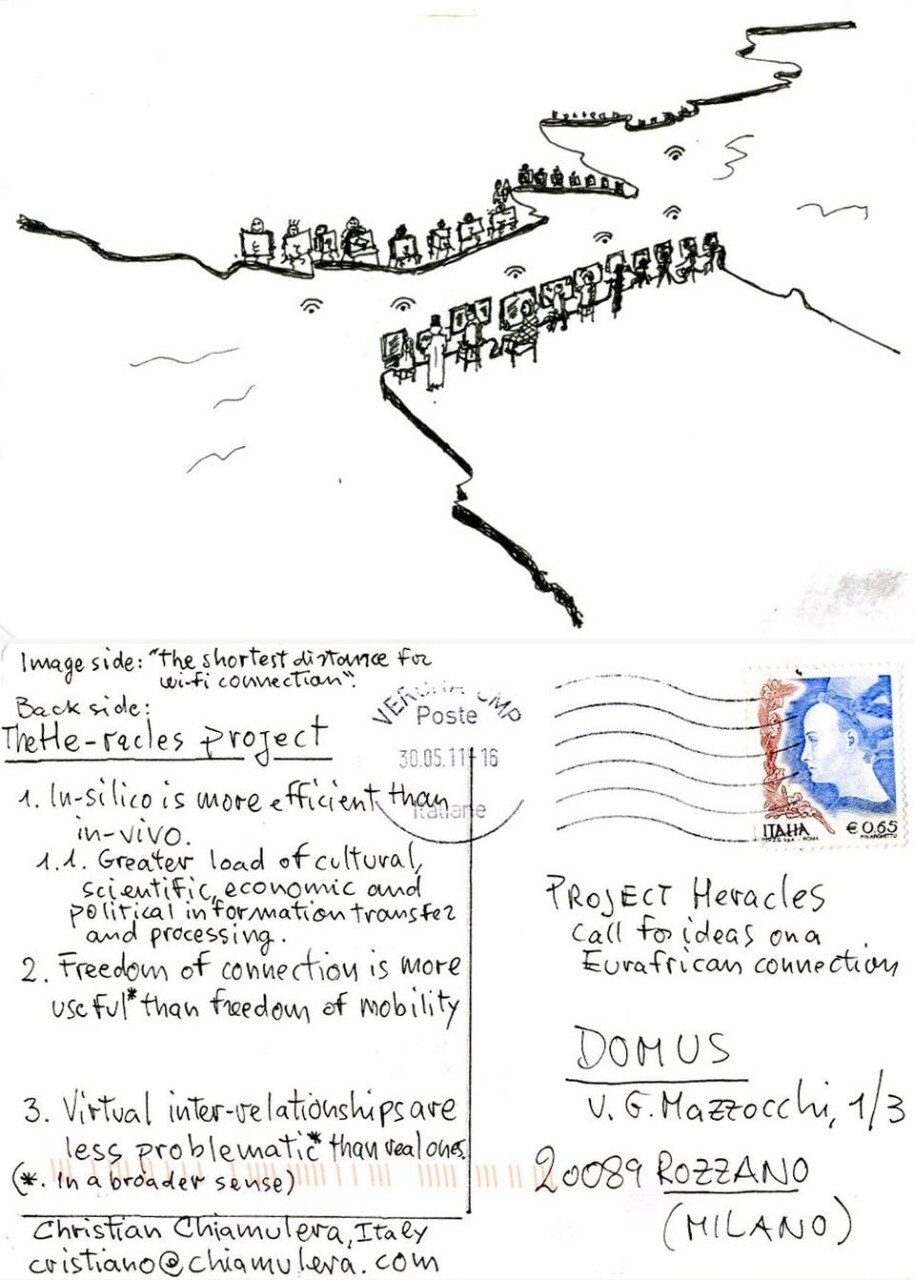 Image side: "the shortest distance for
wi-fi connection".
Back side:
The He-racles project
1. In-silico is more efficient than
in-vivo.
1.1. Greater load of cultural,
scientific, economic and
political information transfer
and processing.
2. Freedom of connection is more
useful* than freedom of mobility
3. Virtual inter-relationships are
less problematic* than real ones.
(*. In a broader sense)
Christian Chiamulera, Italy
cristiano@chiamulera.com
VERONA CMP
Poste
30.05.11-16
Italiane
ITALIA
€ 0,65
PROJECT Heracles
call for ideas on a
Eurafrican connection
DOMUS
V. G. Mazzocchi, 1/3
20089 ROZZANO
(MILANO)